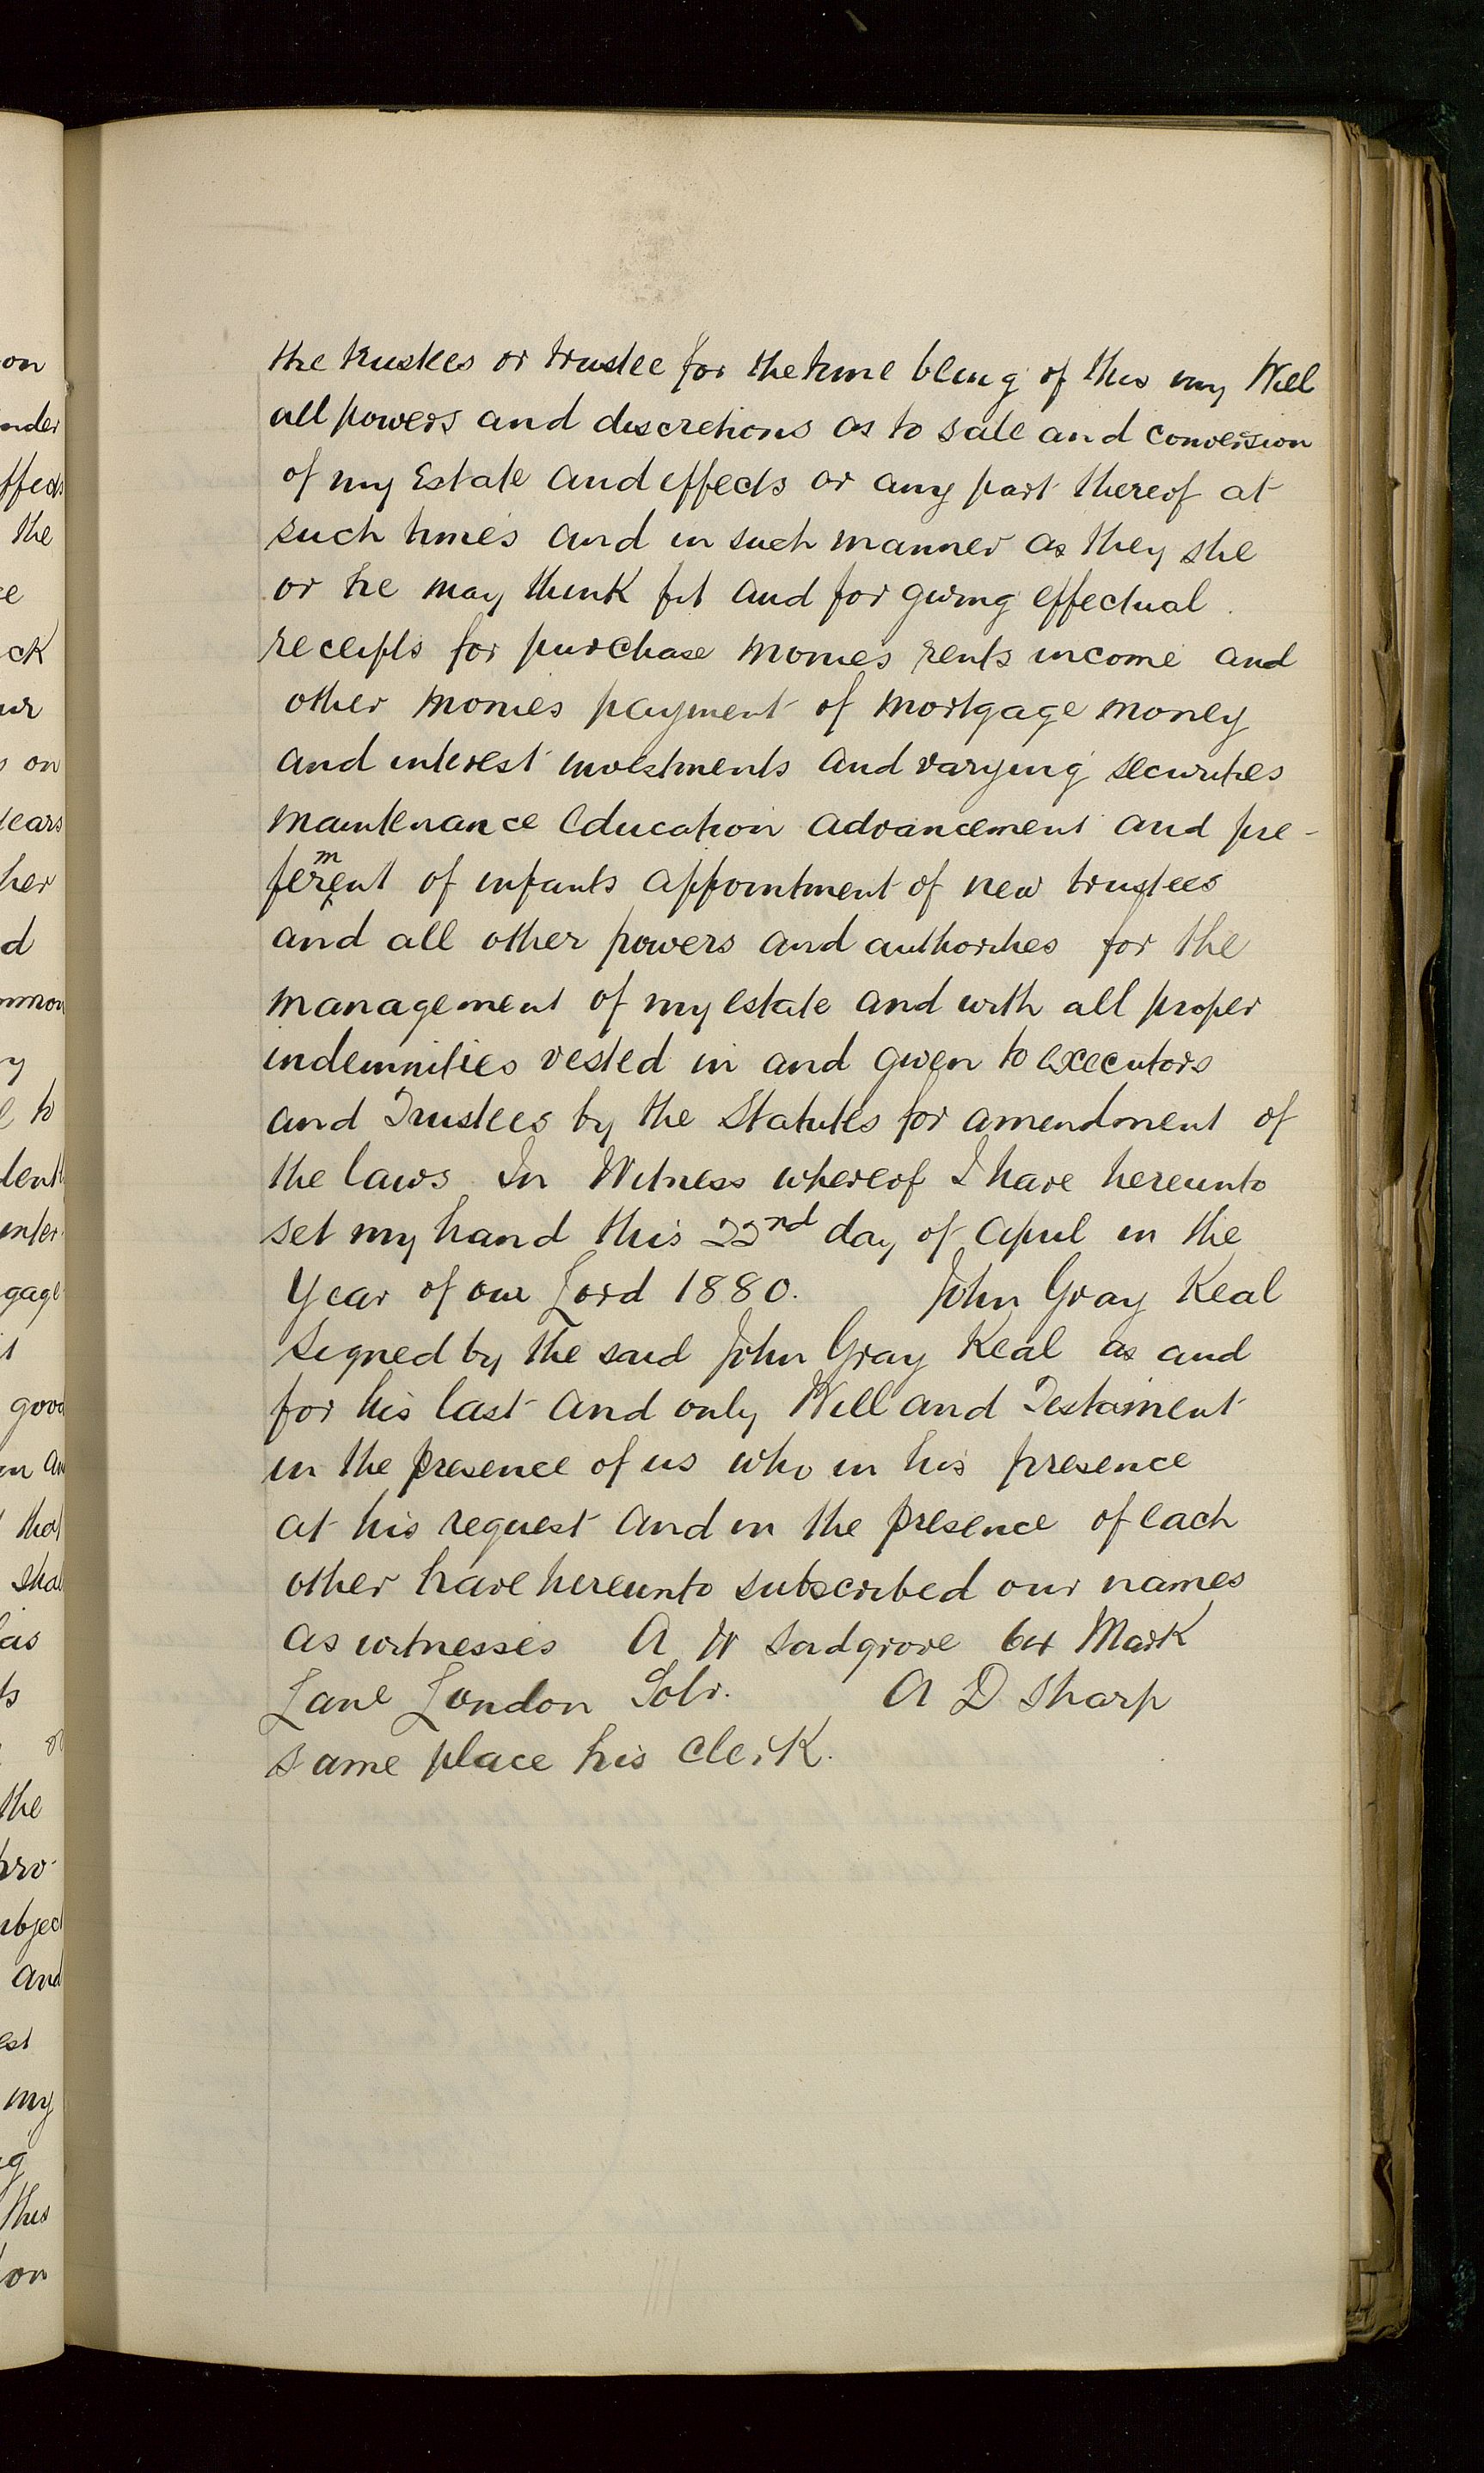 the trustees or trustee for the time being of this my Will
all powers and discretions as to sale and conversion
of my Estate and effects or any part thereof at
such times and in such manner as they she
or he may think fit and for giving effectual
receipts for purchase monies rents income and
other monies payment of mortgage money
and interest investments and varying securities
maintenance Education advancement and pre-
ferment of infants appointment of new trustees
and all other powers and authorities for the
management of my estate and with all proper
indemnities vested in and given to executors
and Trustees by the Statutes for amendment of
the laws In Witness whereof I have hereunto
set my hand this 22nd day of April in the
Year of our Lord 1880. John Gray Keal
Signed by the said John Gray Keal as and
for his last and only Will and Testament
in the presence of us who in his presence
at his request and in the presence of each
other have hereunto subscribed our names
as witnesses A W Sadgrove 64 Mark
Lane London Solr. A D Sharp
same place his Clerk.